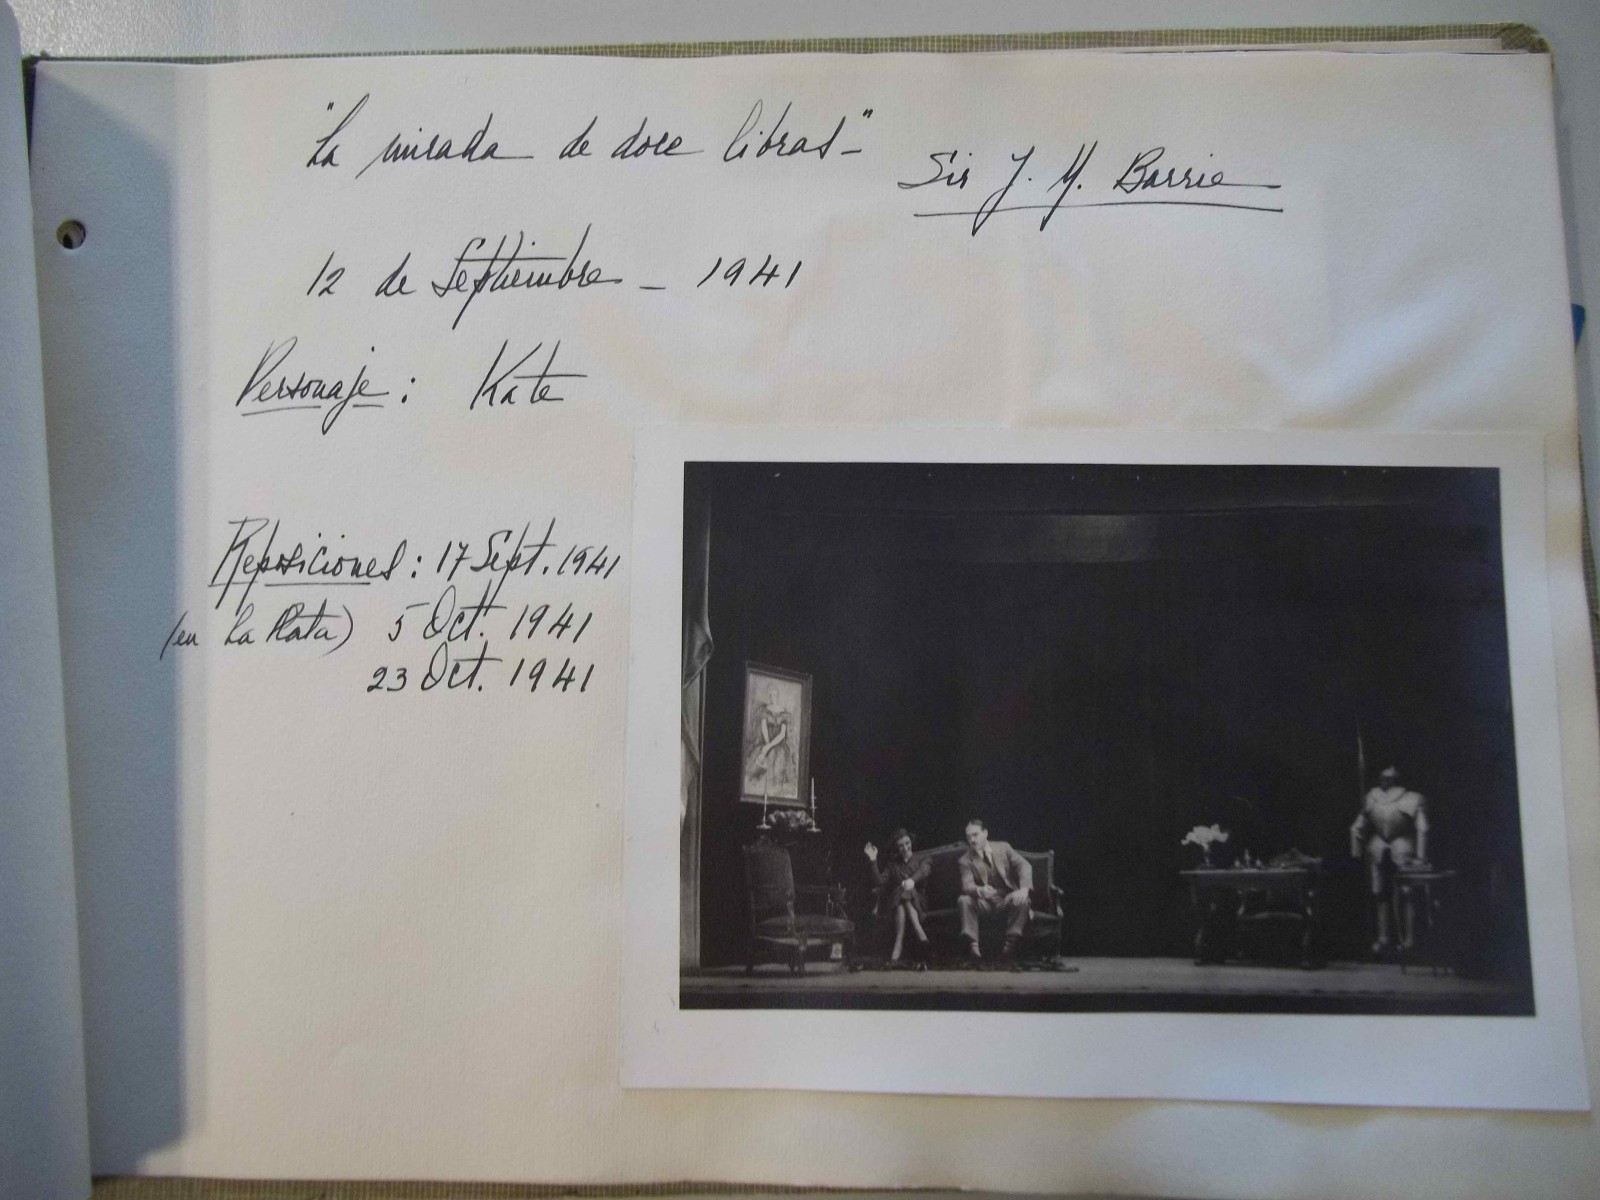 "La mirada de doce libras" -
Sir J. M. Barrie
12 de Septiembre - 1941
Personaje: Kate
Reposiciones: 17 Sept. 1941
(en La Plata) 5 Oct. 1941
23 Oct. 1941